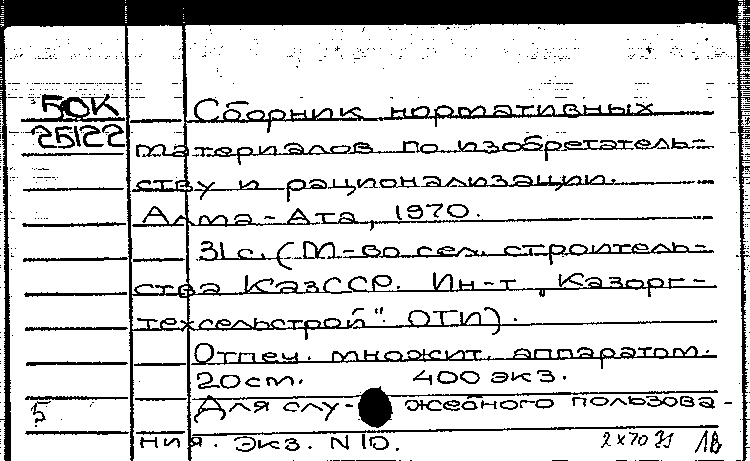 БОК
25122
Сборник нормативных
материалов по изобретатель=
ству и рационализации.
Алма-Ата, 1970.
31 с. (М-во сел. строитель=
ства КазССР. Ин-т „Казорг-
техсельстрой". ОТИ).
Отпеч. множит. аппаратом.
20 cm. 400 экз.
Для слу- жебного пользова-
ния. Экз. N 10.
5